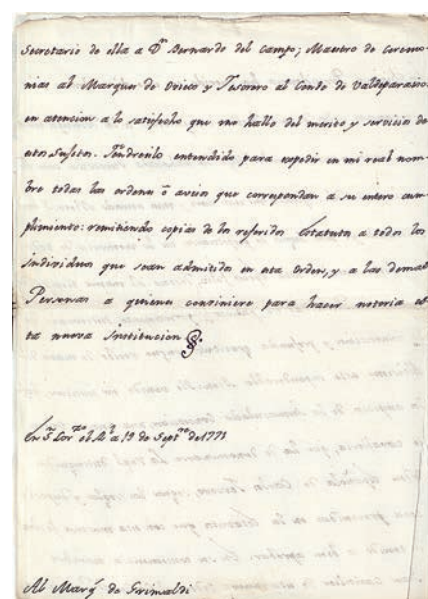 Secretario de ella a Dn Bernardo del Campo; Maestro de Ceremo-
nias al Marques de Ovieco y Tesorero al Conde de Valdeparaiso
en atencion a lo satisfecho que me hallo del merito y servicios de
estos Sujetos. Tendreislo entendido para expedir en mi real nom-
bre todas las ordenes ó avisos que correspondan a su entero cum-
plimiento: remitiendo copias de los referidos Estatutos a todos los
individuos que sean admitidos en esta Orden, y a las demas
Personas a quienes conviniere para hacer notoria es-
ta nueva institucion
En Sn Lorzo el Rl a 19 de Septre de 1771
Al Marqs de Grimaldi